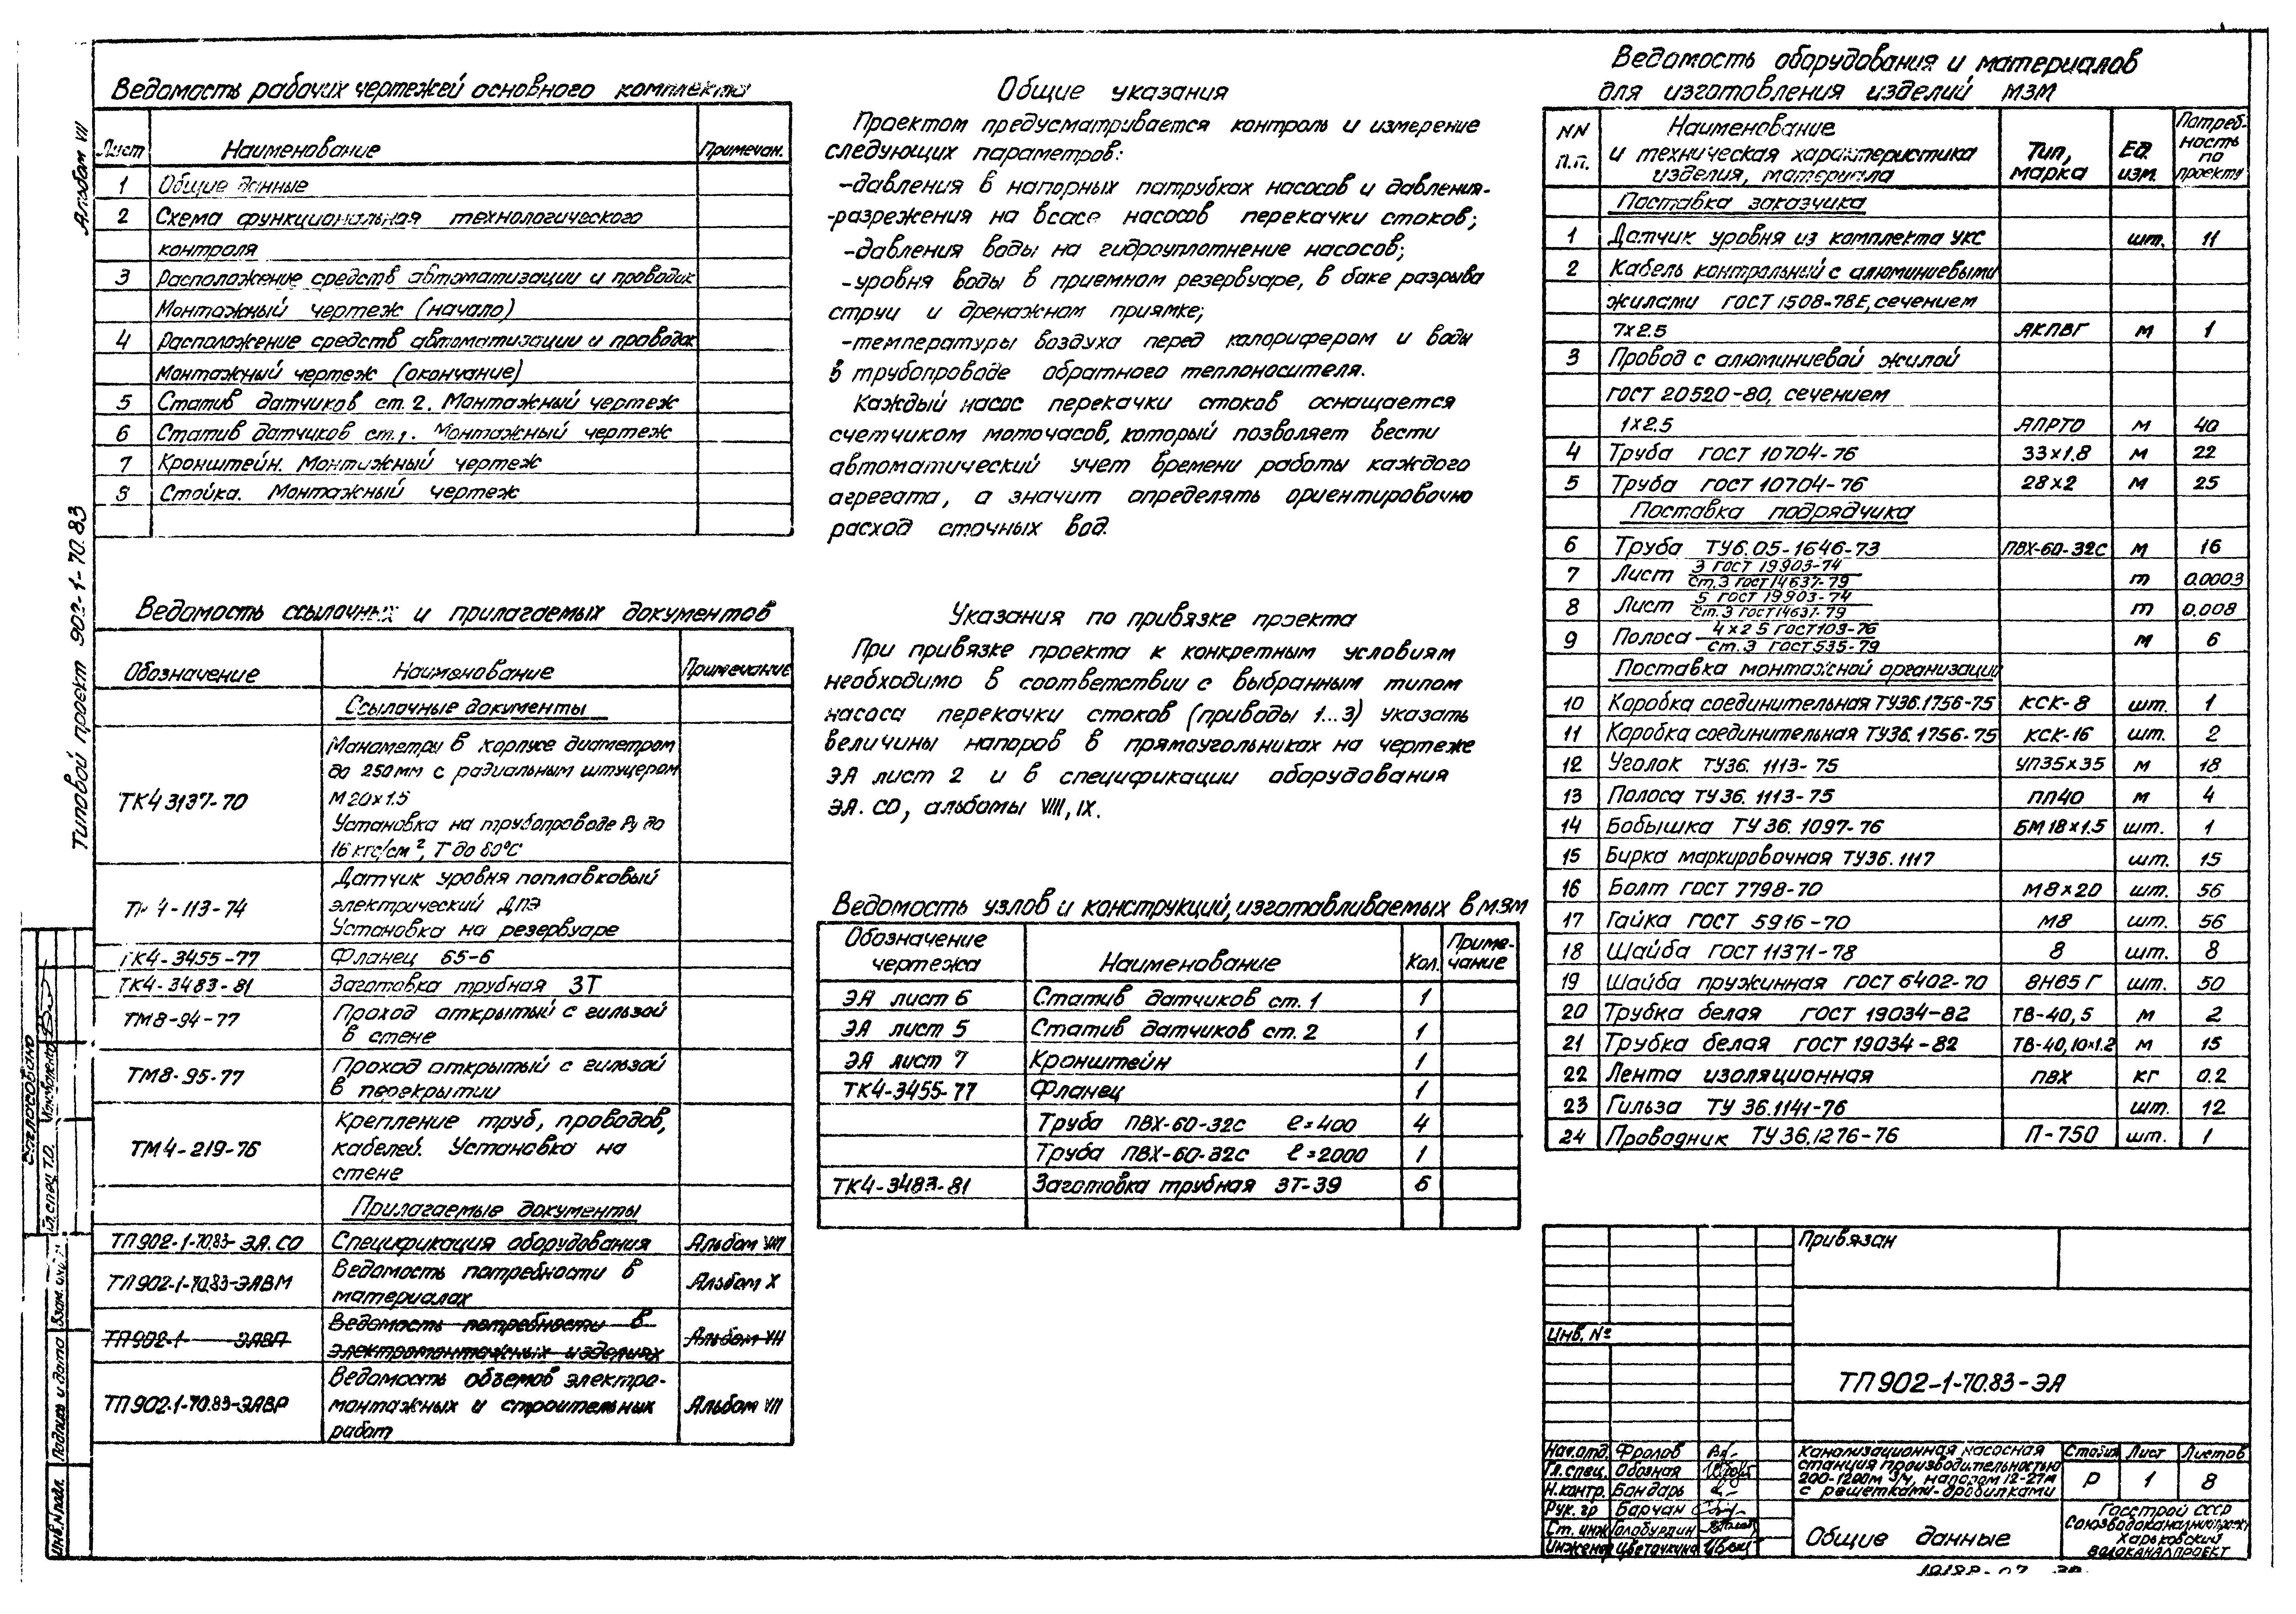 Альбом VII
Типовой проект 902-1-70.83
Ведомость рабочих чертежей основного комплекта
Лист Наименование Примечан.
1 Общие данные
2 Схема функциональная технологического
контроля
3 Расположение средств автоматизации и проводок
Монтажный чертеж (начало)
4 Расположение средств автоматизации и проводок
Монтажный чертеж (окончание)
5 Статив датчиков ст.2. Монтажный чертеж
6 Статив датчиков ст.1. Монтажный чертеж
7 Кронштейн. Монтажный чертеж
8 Стойка. Монтажный чертеж
Ведомость ссылочных и прилагаемых документов
Обозначение Наименование Примечание
Ссылочные документы
ТК4 3137-70 Манометры в корпусе диаметром
до 250мм с радиальным штуцером
М20х1.5
Установка на трубопроводе Ру до
16 кгс/см², Т до 80°С
4-113-74 Датчик уровня поплавковый
электрический ДПЭ
Установка на резервуаре
ТК4-3455-77 Фланец 65-6
ТК4-3483-81 Заготовка трубная ЗТ
ТМ8-94-77 Проход открытый с гильзой
в стене
ТМ8-95-77 Проход открытый с гильзой
в перекрытии
ТМ4-219-76 Крепление труб, проводов,
кабелей. Установка на
стене
Прилагаемые документы
ТП902-1-70.83-ЭА.СО Спецификация оборудования Альбом VIII
ТП902-1-70.83-ЭАВМ Ведомость потребности в
материалах Альбом X
ТП902-1 ЭАВП Ведомость потребности в
электромонтажных изделиях Альбом VII
ТП902.1-70.83-ЭАВР Ведомость объемов электро-
монтажных и строительных
работ Альбом VII
Общие указания
Проектом предусматривается контроль и измерение
следующих параметров:
-давления в напорных патрубках насосов и давления-
-разрежения на всасе насосов перекачки стоков;
-давления воды на гидроуплотнение насосов;
-уровня воды в приемном резервуаре, в баке разрыва
струи и дренажном приямке;
-температуры воздуха перед калорифером и воды
в трубопроводе обратного теплоносителя.
Каждый насос перекачки стоков оснащается
счетчиком моточасов, который позволяет вести
автоматический учет времени работы каждого
агрегата, а значит определять ориентировочно
расход сточных вод.
Указания по привязке проекта
При привязке проекта к конкретным условиям
необходимо в соответствии с выбранным типом
насоса перекачки стоков (приводы 1...3) указать
величины напоров в прямоугольниках на чертеже
ЭА лист 2 и в спецификации оборудования
ЭА.СО, альбомы VIII, IX.
Ведомость узлов и конструкций, изготавливаемых в МЗМ
Обозначение
чертежа Наименование Кол. Приме-
чание
ЭА лист 6 Статив датчиков ст.1 1
ЭА лист 5 Статив датчиков ст.2 1
ЭА лист 7 Кронштейн 1
ТК4-3455-77 Фланец 1
Труба ПВХ-60-32с ℓ=400 4
Труба ПВХ-60-32с ℓ=2000 1
ТК4-3483-81 Заготовка трубная ЗТ-39 6
Ведомость оборудования и материалов
для изготовления изделий МЗМ
NN
п.п. Наименование
и техническая характеристика
изделия, материала Тип,
марка Ед.
изм. Потреб-
ность
по
проекту
Поставка заказчика
1 Датчик уровня из комплекта УКС шт. 11
2 Кабель контрольный с алюминиевыми
жилами ГОСТ 1508-78Е, сечением
7х2.5 АКПВГ м 1
3 Провод с алюминиевой жилой
ГОСТ 20520-80, сечением
1х2.5 АПРТО м 40
4 Труба ГОСТ 10704-76 33х1.8 м 22
5 Труба ГОСТ 10704-76 28х2 м 25
Поставка подрядчика
6 Труба ТУ6.05-1646-73 ПВХ-60-32с м 16
7 Лист 3 ГОСТ 19903-74
Ст.3 ГОСТ 14637-79 т 0.0003
8 Лист 5 ГОСТ 19903-74
Ст.3 ГОСТ 14637-79 т 0.008
9 Полоса 4х25 ГОСТ 103-76
ст.3 ГОСТ 535-79 м 6
Поставка монтажной организации
10 Коробка соединительная ТУ36.1756-75 КСК-8 шт. 1
11 Коробка соединительная ТУ36.1756-75 КСК-16 шт. 2
12 Уголок ТУ36. 1113-75 УП35х35 м 18
13 Полоса ТУ36. 1113-75 ПП40 м 4
14 Бобышка ТУ 36. 1097-76 БМ18х1.5 шт. 1
15 Бирка маркировочная ТУ36.1117 шт. 15
16 Болт ГОСТ 7798-70 М8х20 шт. 56
17 Гайка ГОСТ 5916-70 М8 шт. 56
18 Шайба ГОСТ 11371-78 8 шт. 8
19 Шайба пружинная ГОСТ 6402-70 8Н65Г шт. 50
20 Трубка белая ГОСТ 19034-82 ТВ-40,5 м 2
21 Трубка белая ГОСТ 19034-82 ТВ-40,10х1.2 м 15
22 Лента изоляционная ПВХ кг 0.2
23 Гильза ТУ 36.1141-76 шт. 12
24 Проводник ТУ 36.1276-76 П-750 шт. 1
Привязан
Инв. №
ТП902-1-70.83-ЭА
Нач.отд. Фролов
Гл.спец. Обозная
Н.контр. Бондарь
Рук. гр Барчан
Ст. инж Голобурдин
Инженер Цветочкина
Канализационная насосная
станция производительностью
200-1200м³/ч, напором 12-27м
с решетками-дробилками
Стадия Лист Листов
Р 1 8
Общие данные
Госстрой СССР
Союзводоканалниипроект
Харьковский
ВОДОКАНАЛПРОЕКТ
Согласовано
Гл.спец Т.О.
Взам. инв.
Подпись и дата
Инв.N подл.